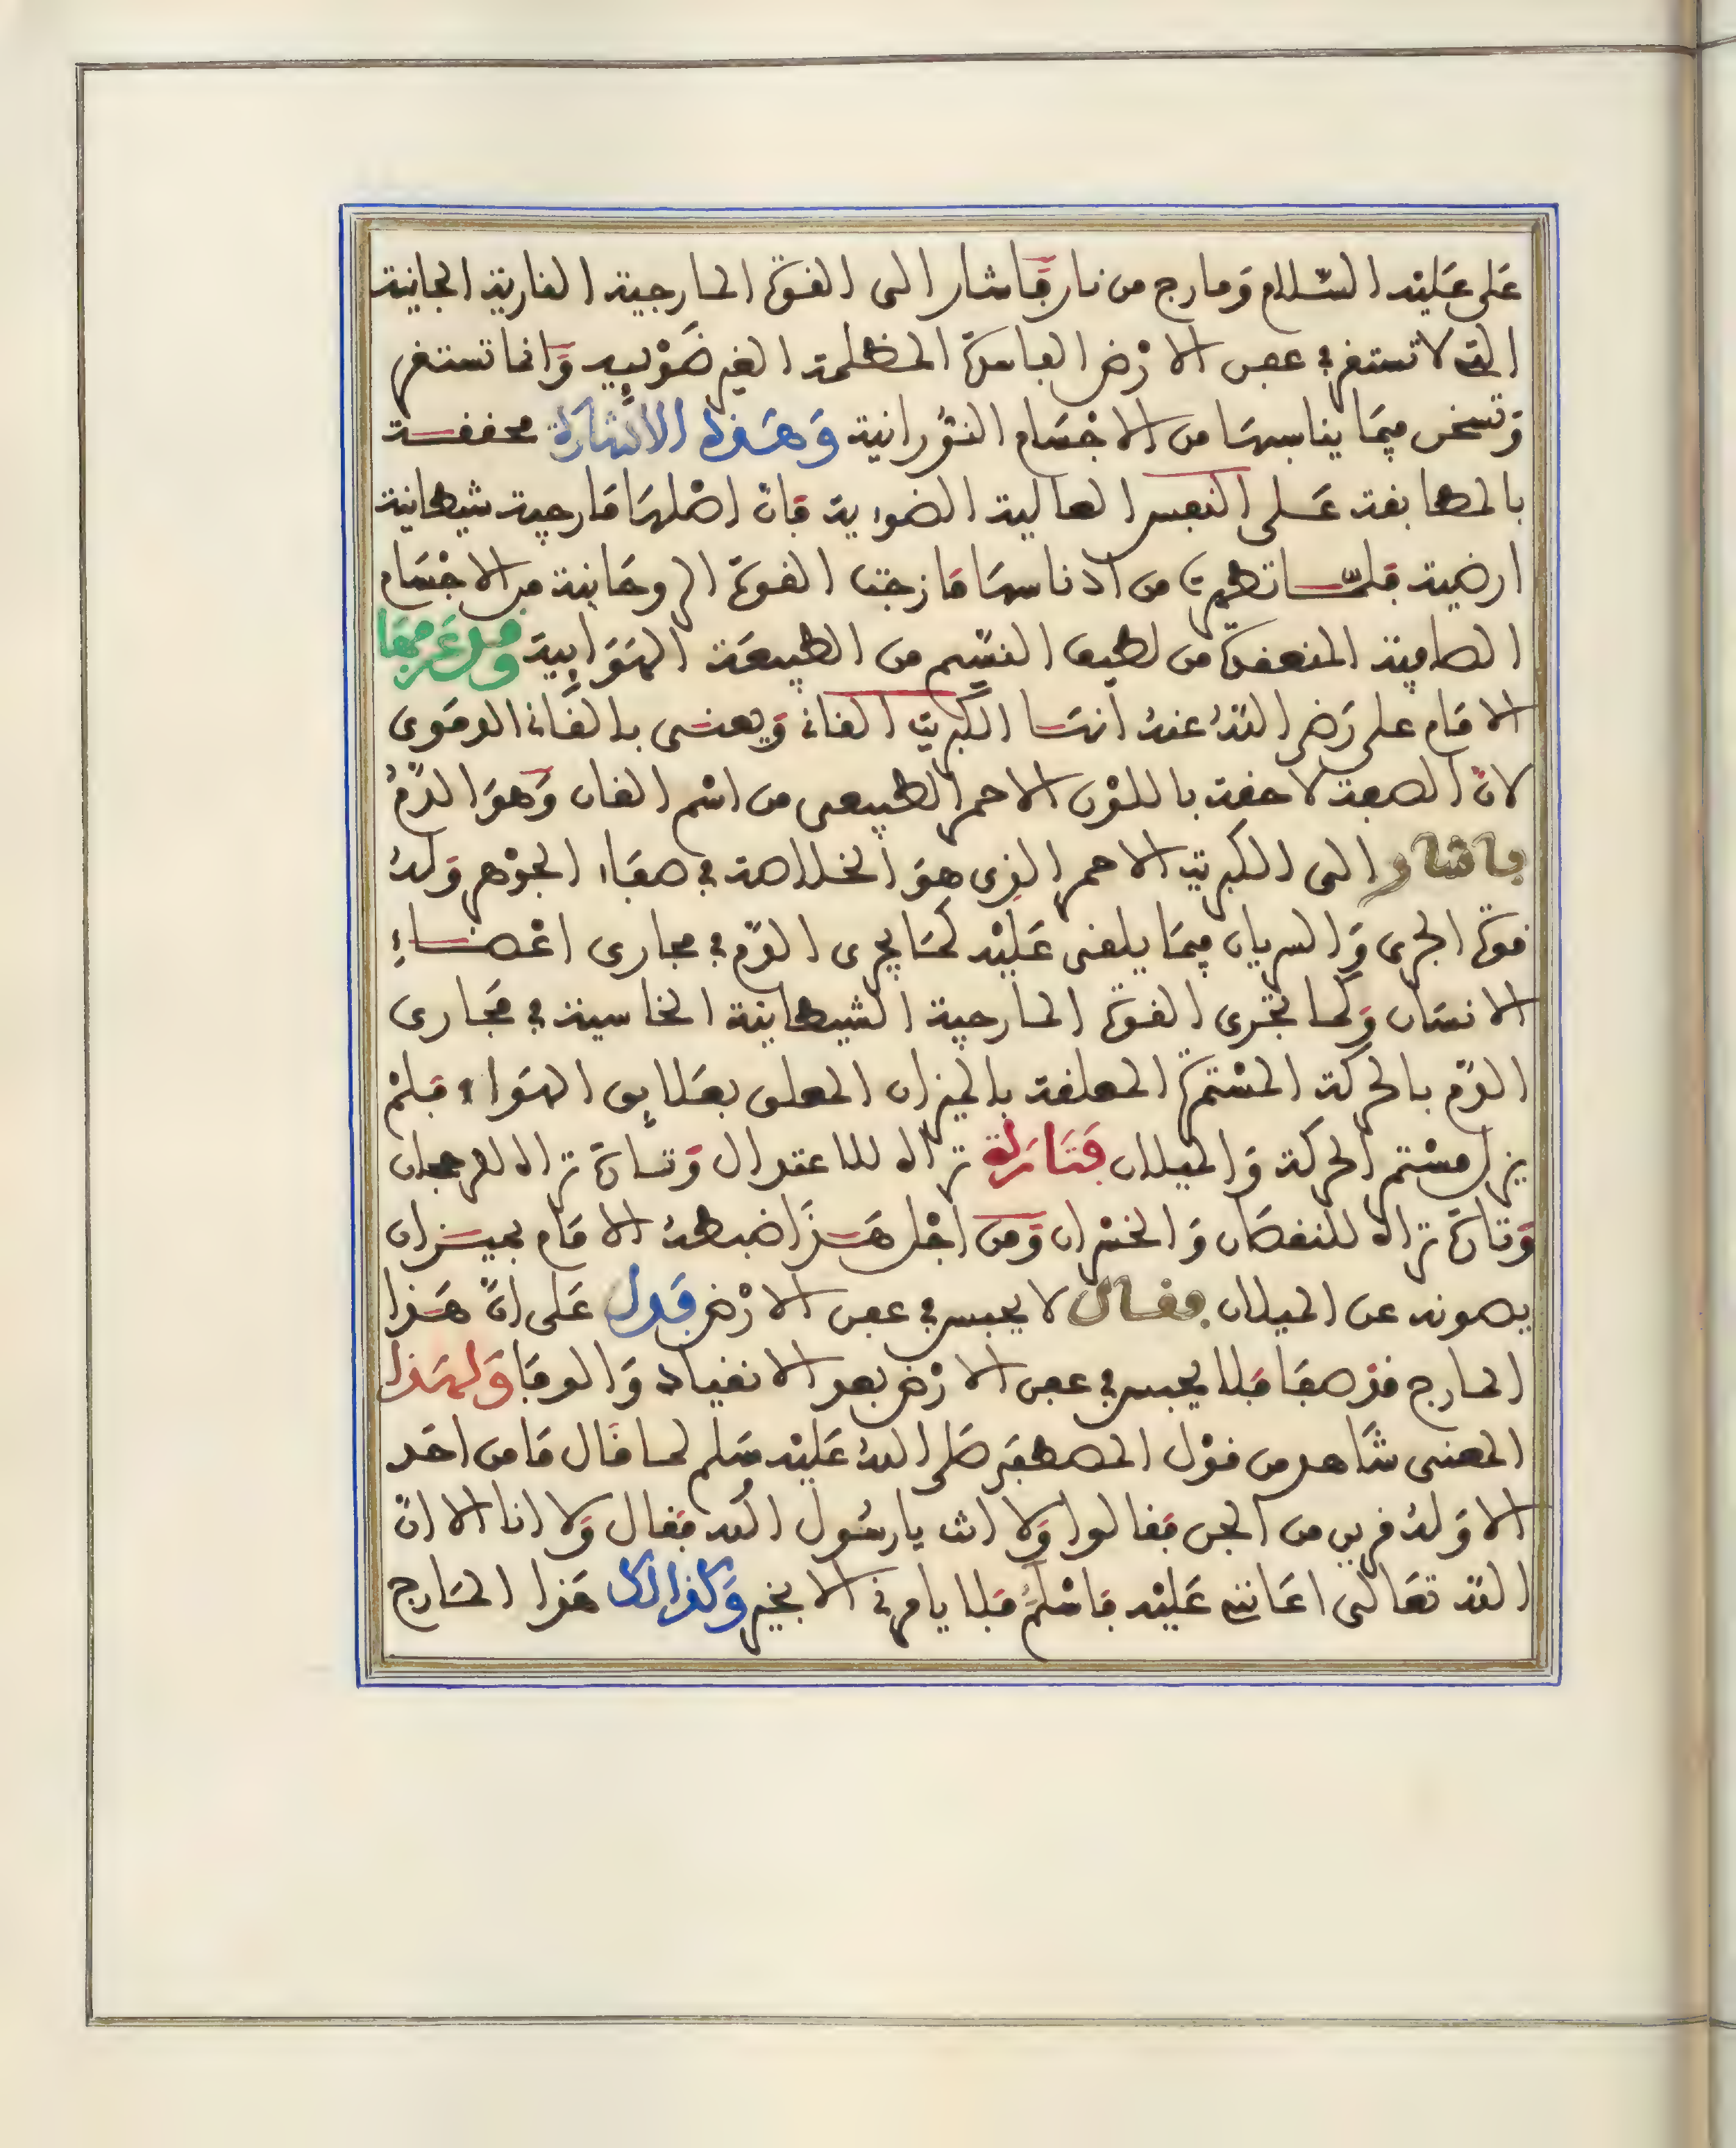 على عليه السّلام ومارج من نار فاشار الى القوة المارجية النارية الجانية
التي لا تستقر في عمق الارض العاسرة المظلمة الغير ضوئييه وانما تستقر
وتسخن فيما يناسبها من الاجسام النورانية وهذه الاشارة محققة
بالمطابقة على النفس العالية الضوءية فان اصلها مارجية شيطانية
ارضية فلمّا تطهرت من ادناسها مازجت القوة الروحانية من الاجسام
الصافية المنعقدة من لطيف النسيم من الطبيعة الهوايية وقد عرفها
الامام على رضى الله عنه انها الكبريت القاني ويعنى بالقاني الدموى
لان الصبغة لاحقة باللون الاحمر الطبيعى من اسم القان وهو الدم
فاشار الى الكبريت الاحمر الذى هو الخلاصة في صفاء الجوهر وله
قوة الجرى والسريان فيما يلقى عليه كما يجرى الدم في مجارى اعضاء
الانسان وكما تجرى القوة المارجية الشيطانية الخاسية في مجارى
الدم بالحركة المستمرة المعلقة بالميزان المعلق بعلايق الهواء فلم
يزل مستمر الحركة والميلان فتارة تراه للاعتدال وتارة تراه للرجحان
وتارة تراه للنقصان والخسران ومن اجل هذا ضبطه الامام بميزان
يصونه عن الميلان فقال لا يحبس في عمق الارض فدل على انّ هذا
المارج قد صفا فلا يحبس في عمق الارض بعد الانقياد والوفا ولهذا
المعنى شاهد من قول المصطفى صلى الله عليه وسلم لما قال ما من احد
الا وله قرين من الجن فقالوا ولا انت يارسول الله فقال ولا انا الا انّ
الله تعالى اعانني عليه فاسلم فلا يامرني الا بخير وكذالك هذا المارج